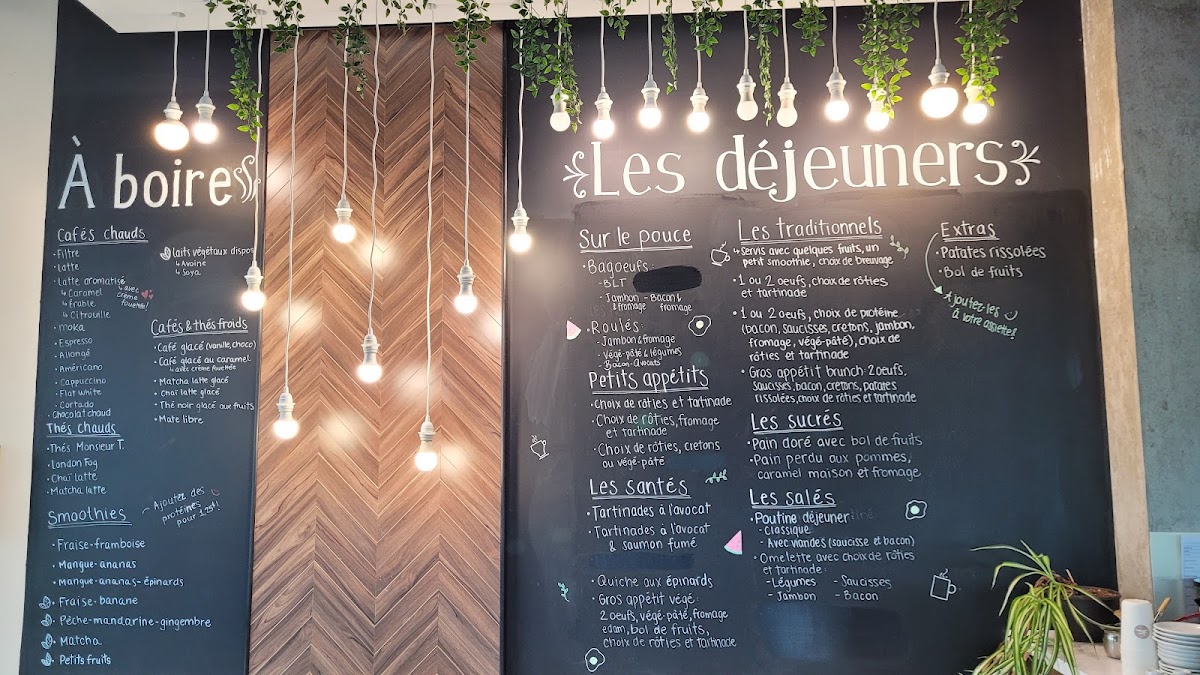 À boire
Cafés chauds
· Filtre
· Latte
· Latte aromatisé
↳ Caramel
↳ Érable
↳ Citrouille
↳ avec crème fouettée!
· Moka
· Espresso
· Allongé
· Américano
· Cappuccino
· Flat white
· Cortado
· Chocolat chaud
laits végétaux dispos
↳ Avoine
↳ Soya
Cafés & thés froids
· Café glacé (vanille, choco)
· Café glacé au caramel
↳ avec crème fouettée
· Matcha latte glacé
· Chaï latte glacé
· Thé noir glacé aux fruits
· Mate libre
Thés chauds
· Thés Monsieur T.
· London Fog
· Chaï latte
· Matcha latte
Smoothies
~ Ajoutez des
protéines
pour 1.25$!
· Fraise-framboise
· Mangue-ananas
· Mangue-ananas-épinards
· Fraise-banane
· Pêche-mandarine-gingembre
· Matcha
· Petits fruits
Les déjeuners
Sur le pouce
· Bagoeufs
- BLT
- Jambon & fromage
- Bacon & fromage
· Roulés
- Jambon & fromage
- Végé-pâté & légumes
- Bacon-avocats
Petits appétits
· Choix de rôties et tartinade
· Choix de rôties, fromage
et tartinade
· Choix de rôties, cretons
ou végé-pâté
Les santés
· Tartinades à l'avocat
· Tartinades à l'avocat
& saumon fumé
· Quiche aux épinards
· Gros appétit végé
2 oeufs, végé-pâté, fromage
edam, bol de fruits,
choix de rôties et tartinade
Les traditionnels
↳ Servis avec quelques fruits, un
petit smoothie, choix de breuvage
· 1 ou 2 oeufs, choix de rôties
et tartinade
· 1 ou 2 oeufs, choix de protéine
(bacon, saucisses, cretons, jambon,
fromage, végé-pâté), choix de
rôties et tartinade
· Gros appétit brunch: 2 oeufs,
saucisses, bacon, cretons, patates
rissolées, choix de rôties et tartinade
Les sucrés
· Pain doré avec bol de fruits
· Pain perdu aux pommes,
caramel maison et fromage
Les salés
· Poutine déjeuner
- Classique
- Avec viandes (saucisse et bacon)
· Omelette avec choix de rôties
et tartinade
- Légumes - Saucisses
- Jambon - Bacon
Extras
· Patates rissolées
· Bol de fruits
Ajoutez-les
à votre assiette!